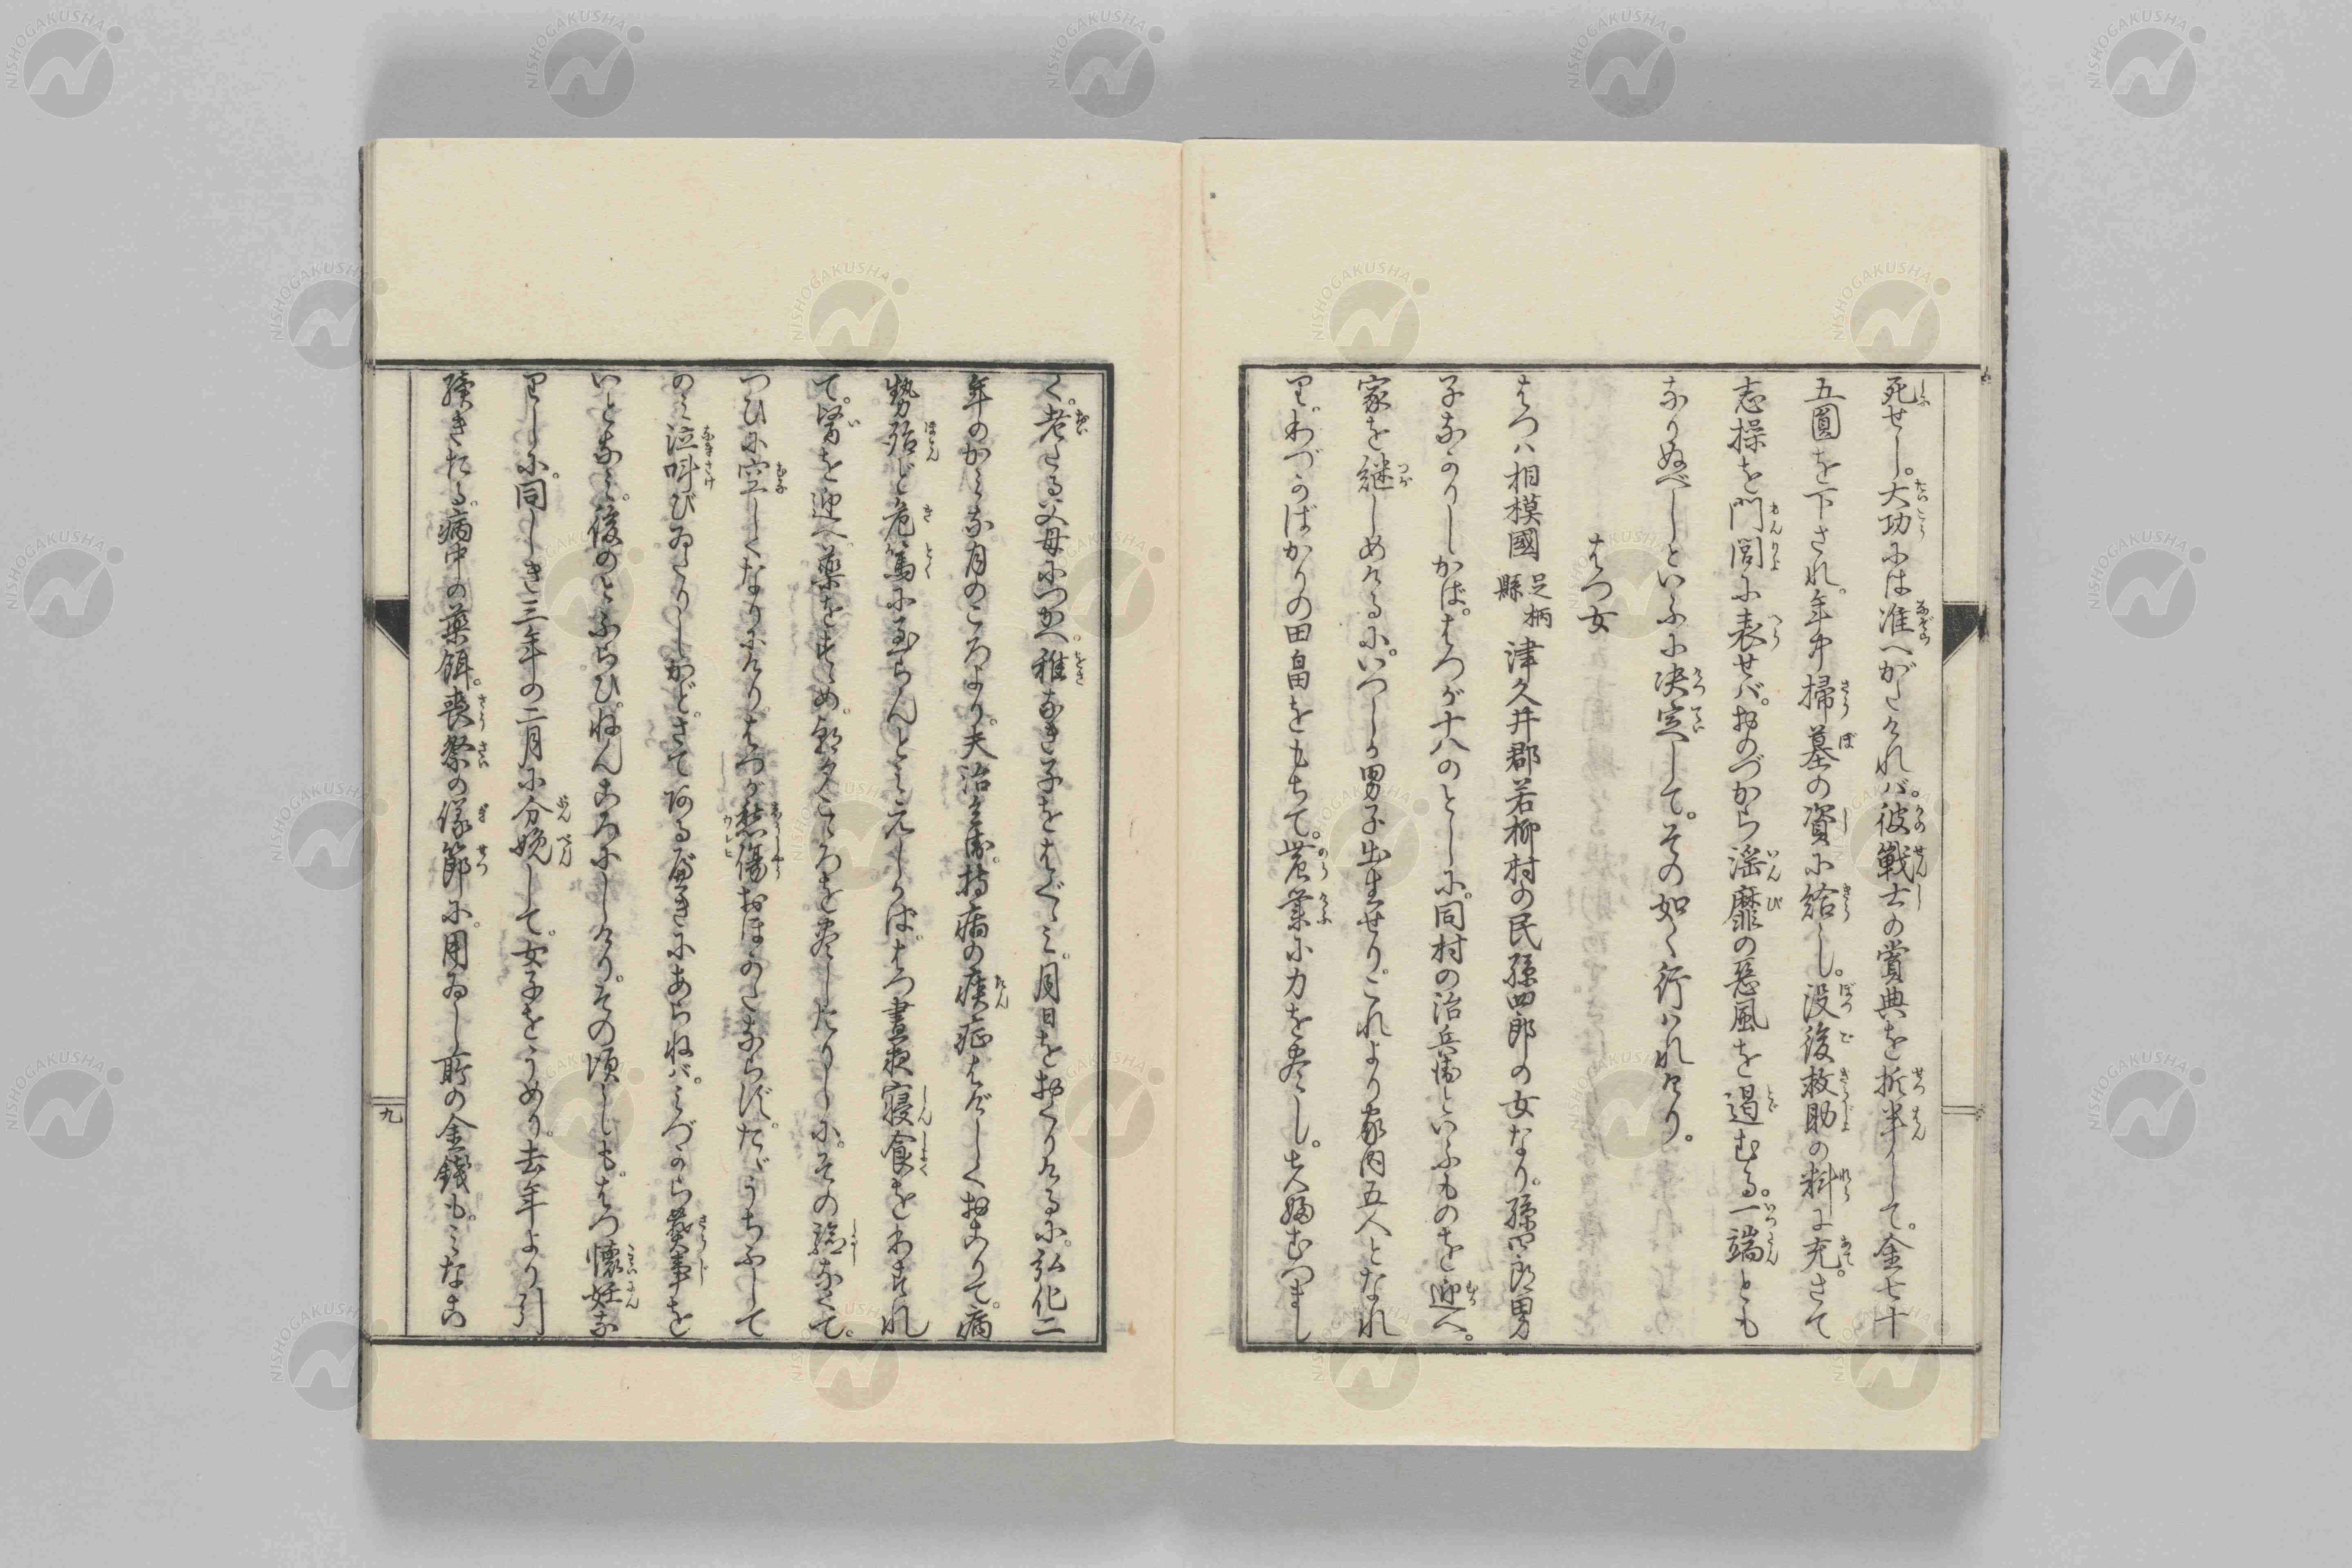 死せし。大功には准へがたければ。彼戦士の賞典を折半して。金七十
五圓を下され。年中掃墓の資に給し。没後救助の料に充。さて
志操を門閭に表せバ。おのづから淫靡の悪風を遏むる。一端とも
なりぬべしといふに决定して。その如く行ハれけり。
はつ女
はつハ相模國足柄縣津久井郡若柳村の民孫四郎の女なり。孫四郎男
子なかりしかば。はつが十八のとしに。同村の治兵衛といふものを迎へ。
家を継しめけるに。いつしか男子出生せり。これより家内五人となれ
り。わづかばかりの田畠をもちて。農業に力を尽し。夫婦むつまし
く。老たる父母につかへ。稚なき子をはぐゝみ。月日をおくりけるに。弘化二
年のかみな月のころより。夫治兵衛。持病の痰症はげしくおこりて。病
勢殆ど危篤に至らんとみえしかば。はつ晝夜寝食をわすれ
て。醫を迎へ薬をすゝめ。朝夕こゝろを尽したりしに。その驗なくて。
つひに空しくなりにけり。はつが愁傷おほかたならず。たゞうちふして
のみ泣叫びゐたりしかど。さてあるべきにあらねバ。みづから葬事を
いとなみ。後のとふらひ。ねんころにしけり。その頃しも。はつ懐妊な
りしに。同しき三年の二月に分娩して。女子をうめり。去年より引
續きたる。病中の薬餌。喪祭の儀節に。用ゐし所の金錢も。みなこ
九
NISHOGAKUSHA